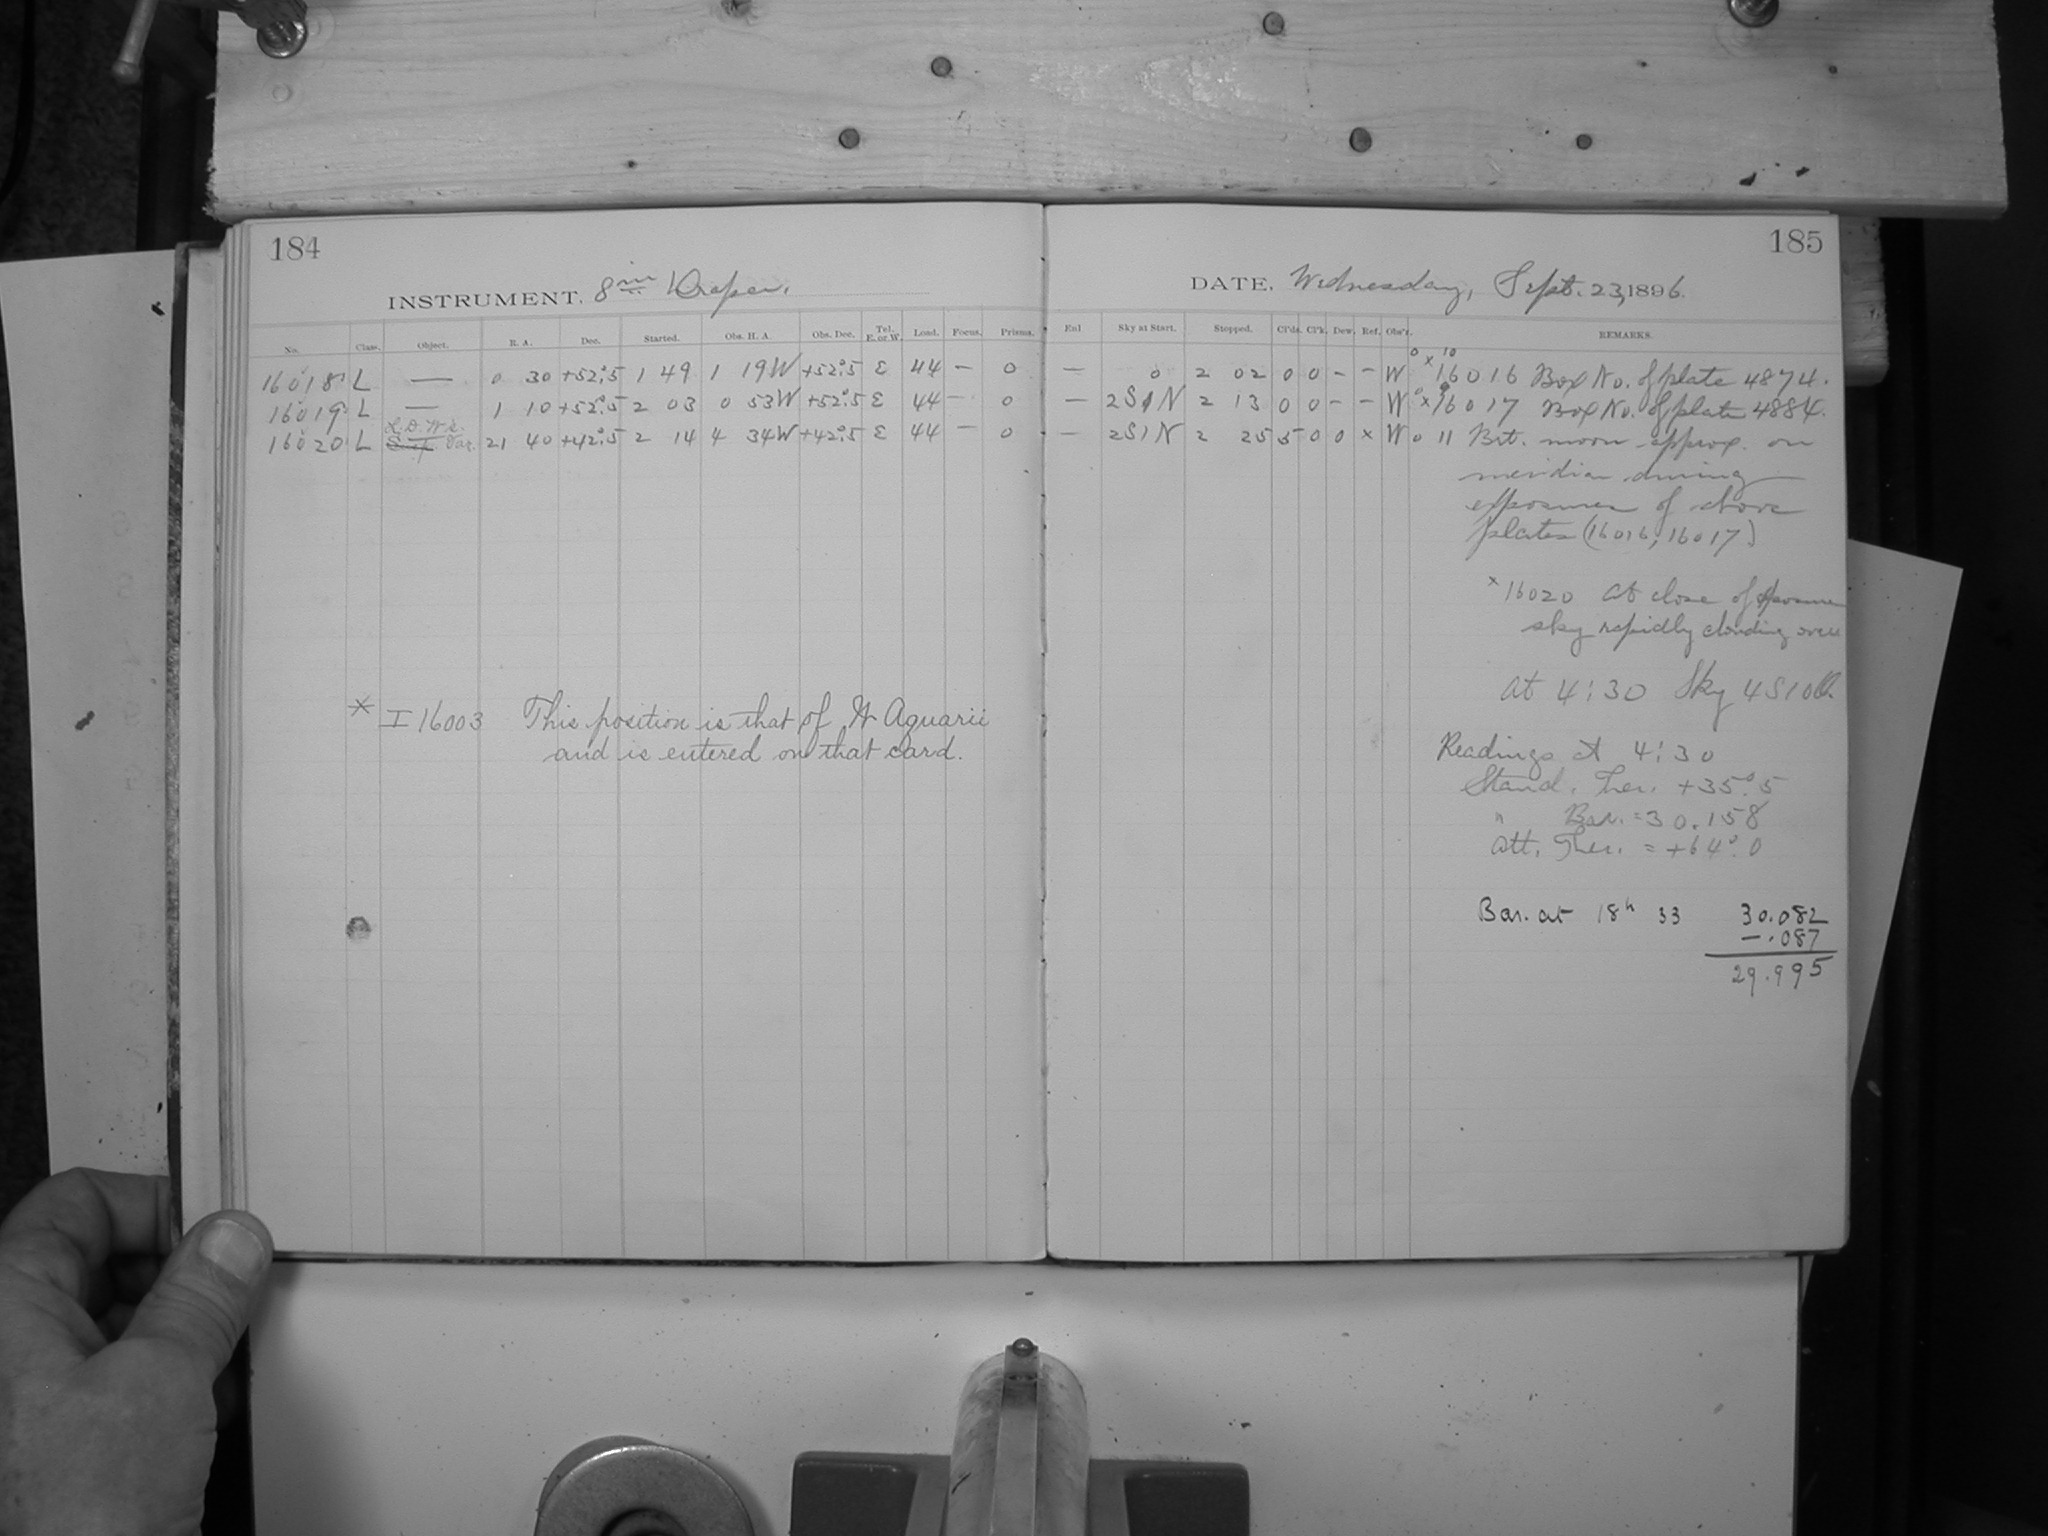 184
INSTRUMENT. 8 in Draper.
No. Class. Object. R. A. Dec. Started. Obs. H. A. Obs. Dec. Tel. E. or W. Load. Focus. Prisms.
16018 L — 0 30 +52°.5 1 49 1 19W +52°.5 E 44 — 0
16019 L — 1 10 +52°.5 2 03 0 53W +52°.5 E 44 — 0
16020 L Var. 21 40 +42°.5 2 14 4 34W +42°.5 E 44 — 0
* I 16003 This position is that of Aquarii
and is entered on that card.
185
DATE. Wednesday, Sept. 23, 1896.
Enl Sky at Start. Stopped. Cl'ds. Cl'k. Dew. Ref. Obs'r. REMARKS.
— 0 2 02 0 0 – – W 0 10 x 16016 Box No. of plate 4874.
— 2S1N 2 13 0 0 – – W 0 9 x 16017 Box No. of plate 4884.
— 2S1N 2 25 5 0 0 x W 0 11 Brt. moon approx. on
meridian during
exposures of above
plates (16016, 16017)
x 16020 At close of exposure
sky rapidly clouding over
At 4:30 Sky 4S10
Readings at 4:30
Stand. Ther. +35°.5
" Bar. = 30.158
Att. Ther. = +64°.0
Bar. at 18h 33 30.082
– .087
29.995